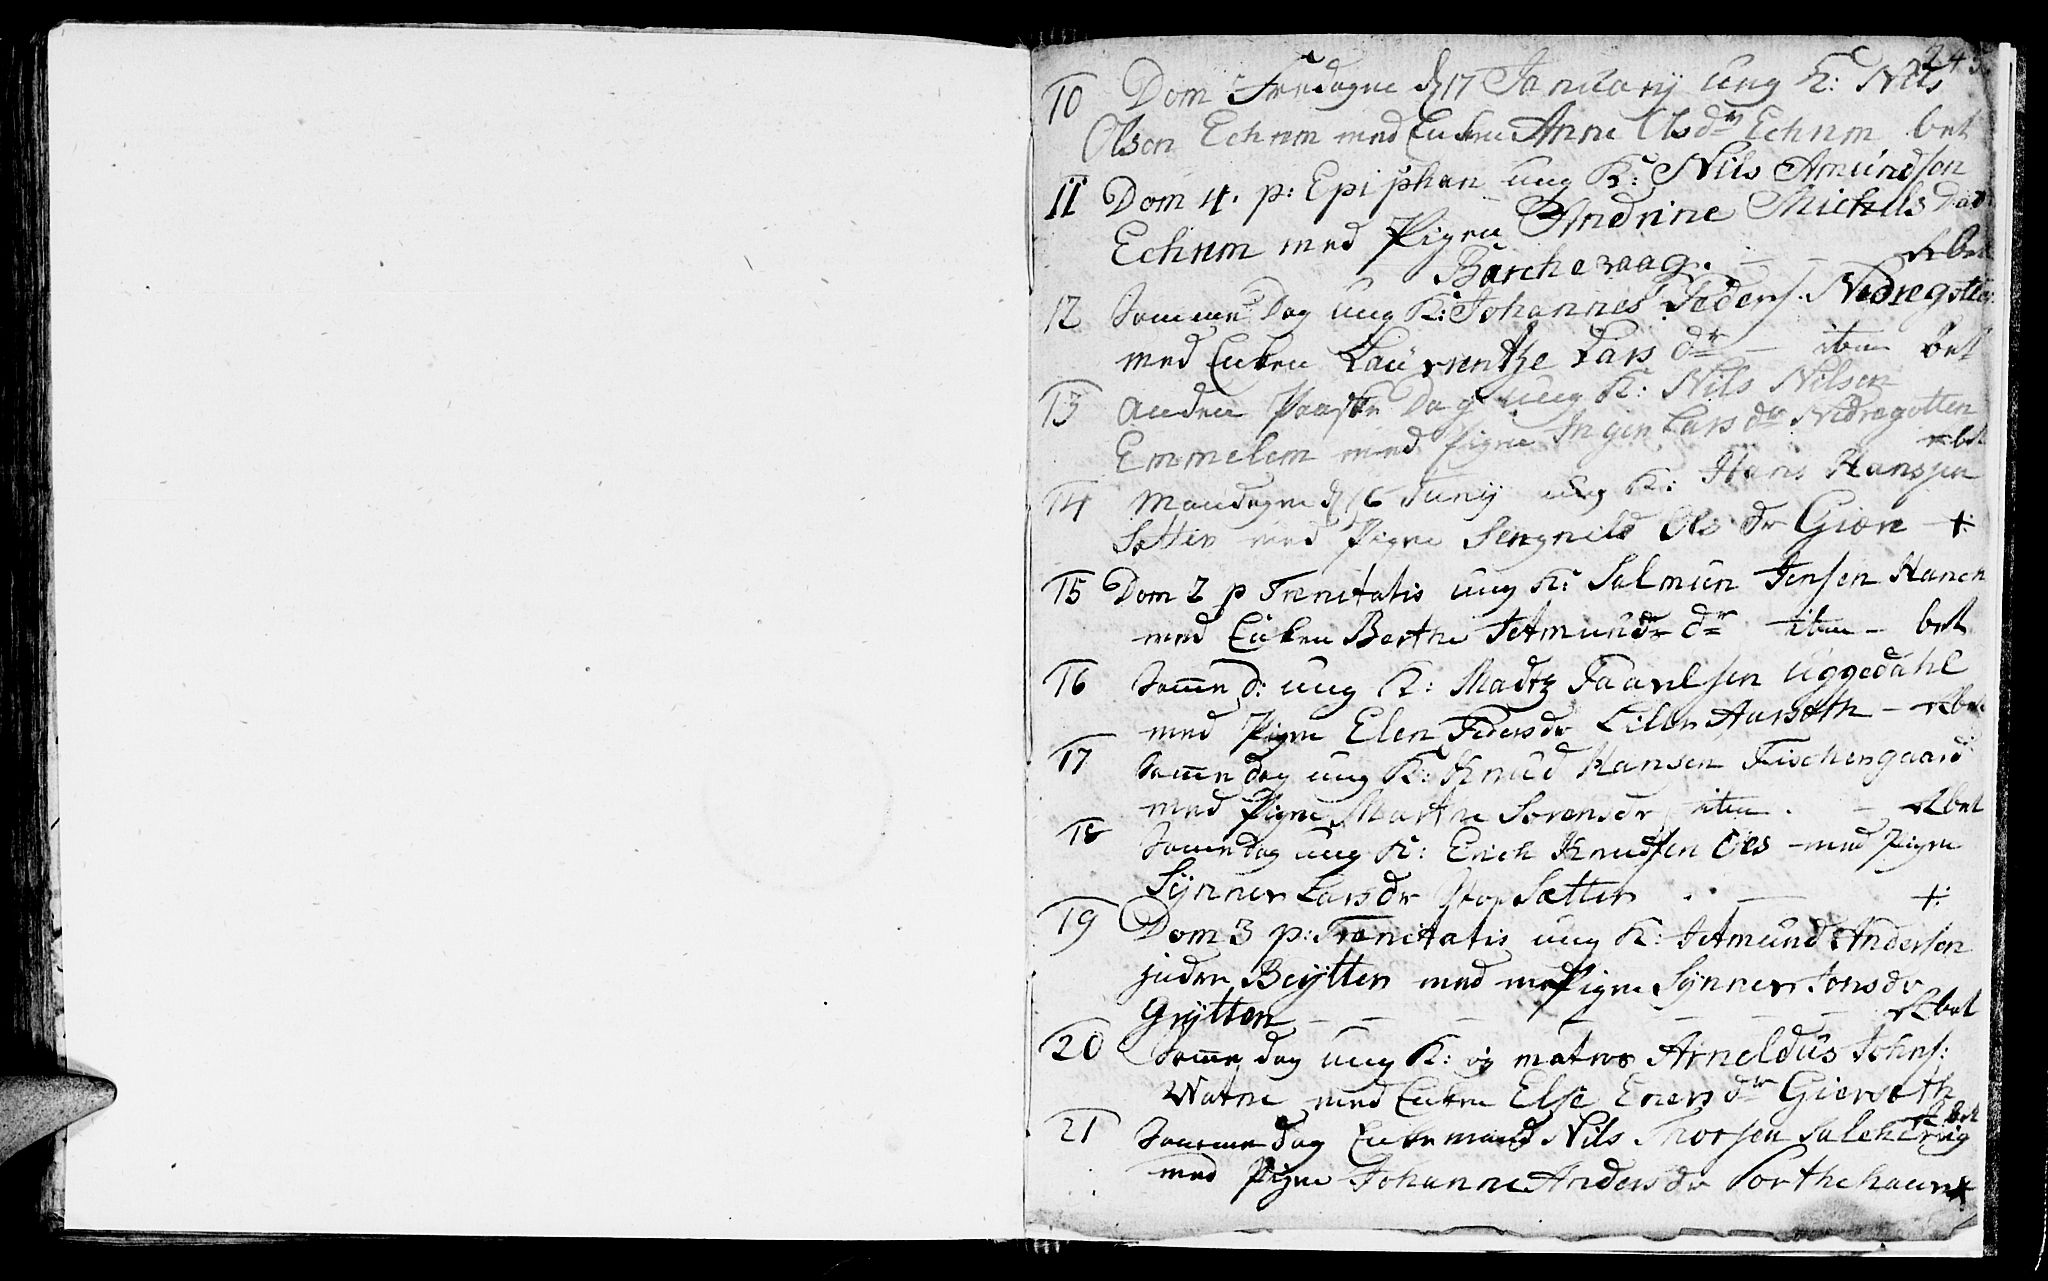 243
10 Dom Fredagen d 17 Januarij ung K: Nils
Olson Echrem med Enken Anne Olsdr Echrem bet
11 Dom 4. p: Epiphan ung K: Nils Amundson
Echrem med Pigen Andrine Michels Datr
Barchevaag. — — bet
12 Samme Dag ung K: Johannes Peders. Nedregotten
med Enken Laurentze Lars dr — item bet
13 Anden Paaske Dag ung K: Nils Nilson
Emmelem med Pigen Ingen Lars dr Nedregotten
bet
14 Mandagen d 16 Junij ung K: Hans Hansen
Sætter med Pigen Sengnild Ols dr Giære +
15 Dom 2 p Trenitatis ung K: Salmun Jensen Hanen
med Enken Berthe Jetmunds dr item - bet
16 Samme d: ung K: Madtz Paavelsen Uggedahl
med Pigen Elen Pedersdr Lillen Aarsæth - bet
17 Samme dag ung K: Knud Hansen Fischergaard
med Pigen Marthe Sorensdr item. - bet
18 Samme dag ung K: Erich Knudsen Oies med Pigen
Synner Lars dr Stor Sætter . — +
19 Dom 3 p: Trenitatis ung K: Jetmund Anderson
Indre Beytten med med Pigen Synner Jonsdr
Grytten — — — — — — — bet
20 Samme dag ung K: og matros Arneldus Johns:
Watne med Enken Else Eners dr Gierseth
bet
21 Samme dag Enkemand Nils Thorsen Salthervig
med Pigen Johanne Anders dr Porthehaun +